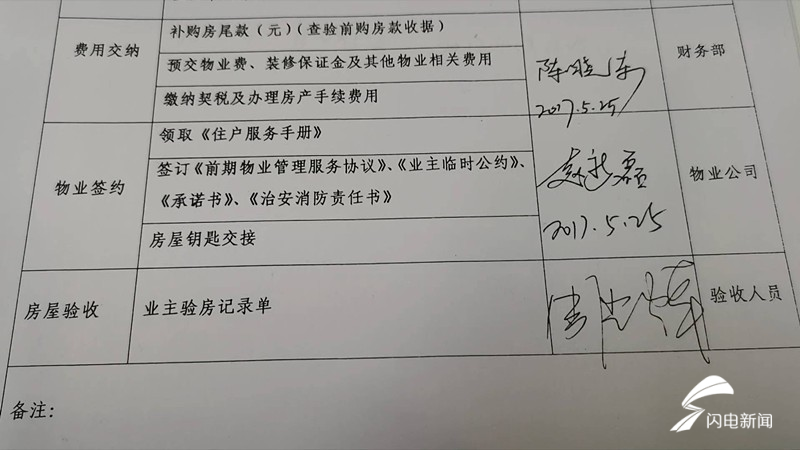 补购房尾款（元）（查验前购房款收据）
费用交纳
预交物业费、装修保证金及其他物业相关费用
财务部
缴纳契税及办理房产手续费用
2017.5.25
领取《住户服务手册》
物业签约
签订《前期物业管理服务协议》、《业主临时公约》、
《承诺书》、《治安消防责任书》
物业公司
房屋钥匙交接
2017.5.25
房屋验收
业主验房记录单
验收人员
备注：
闪电新闻